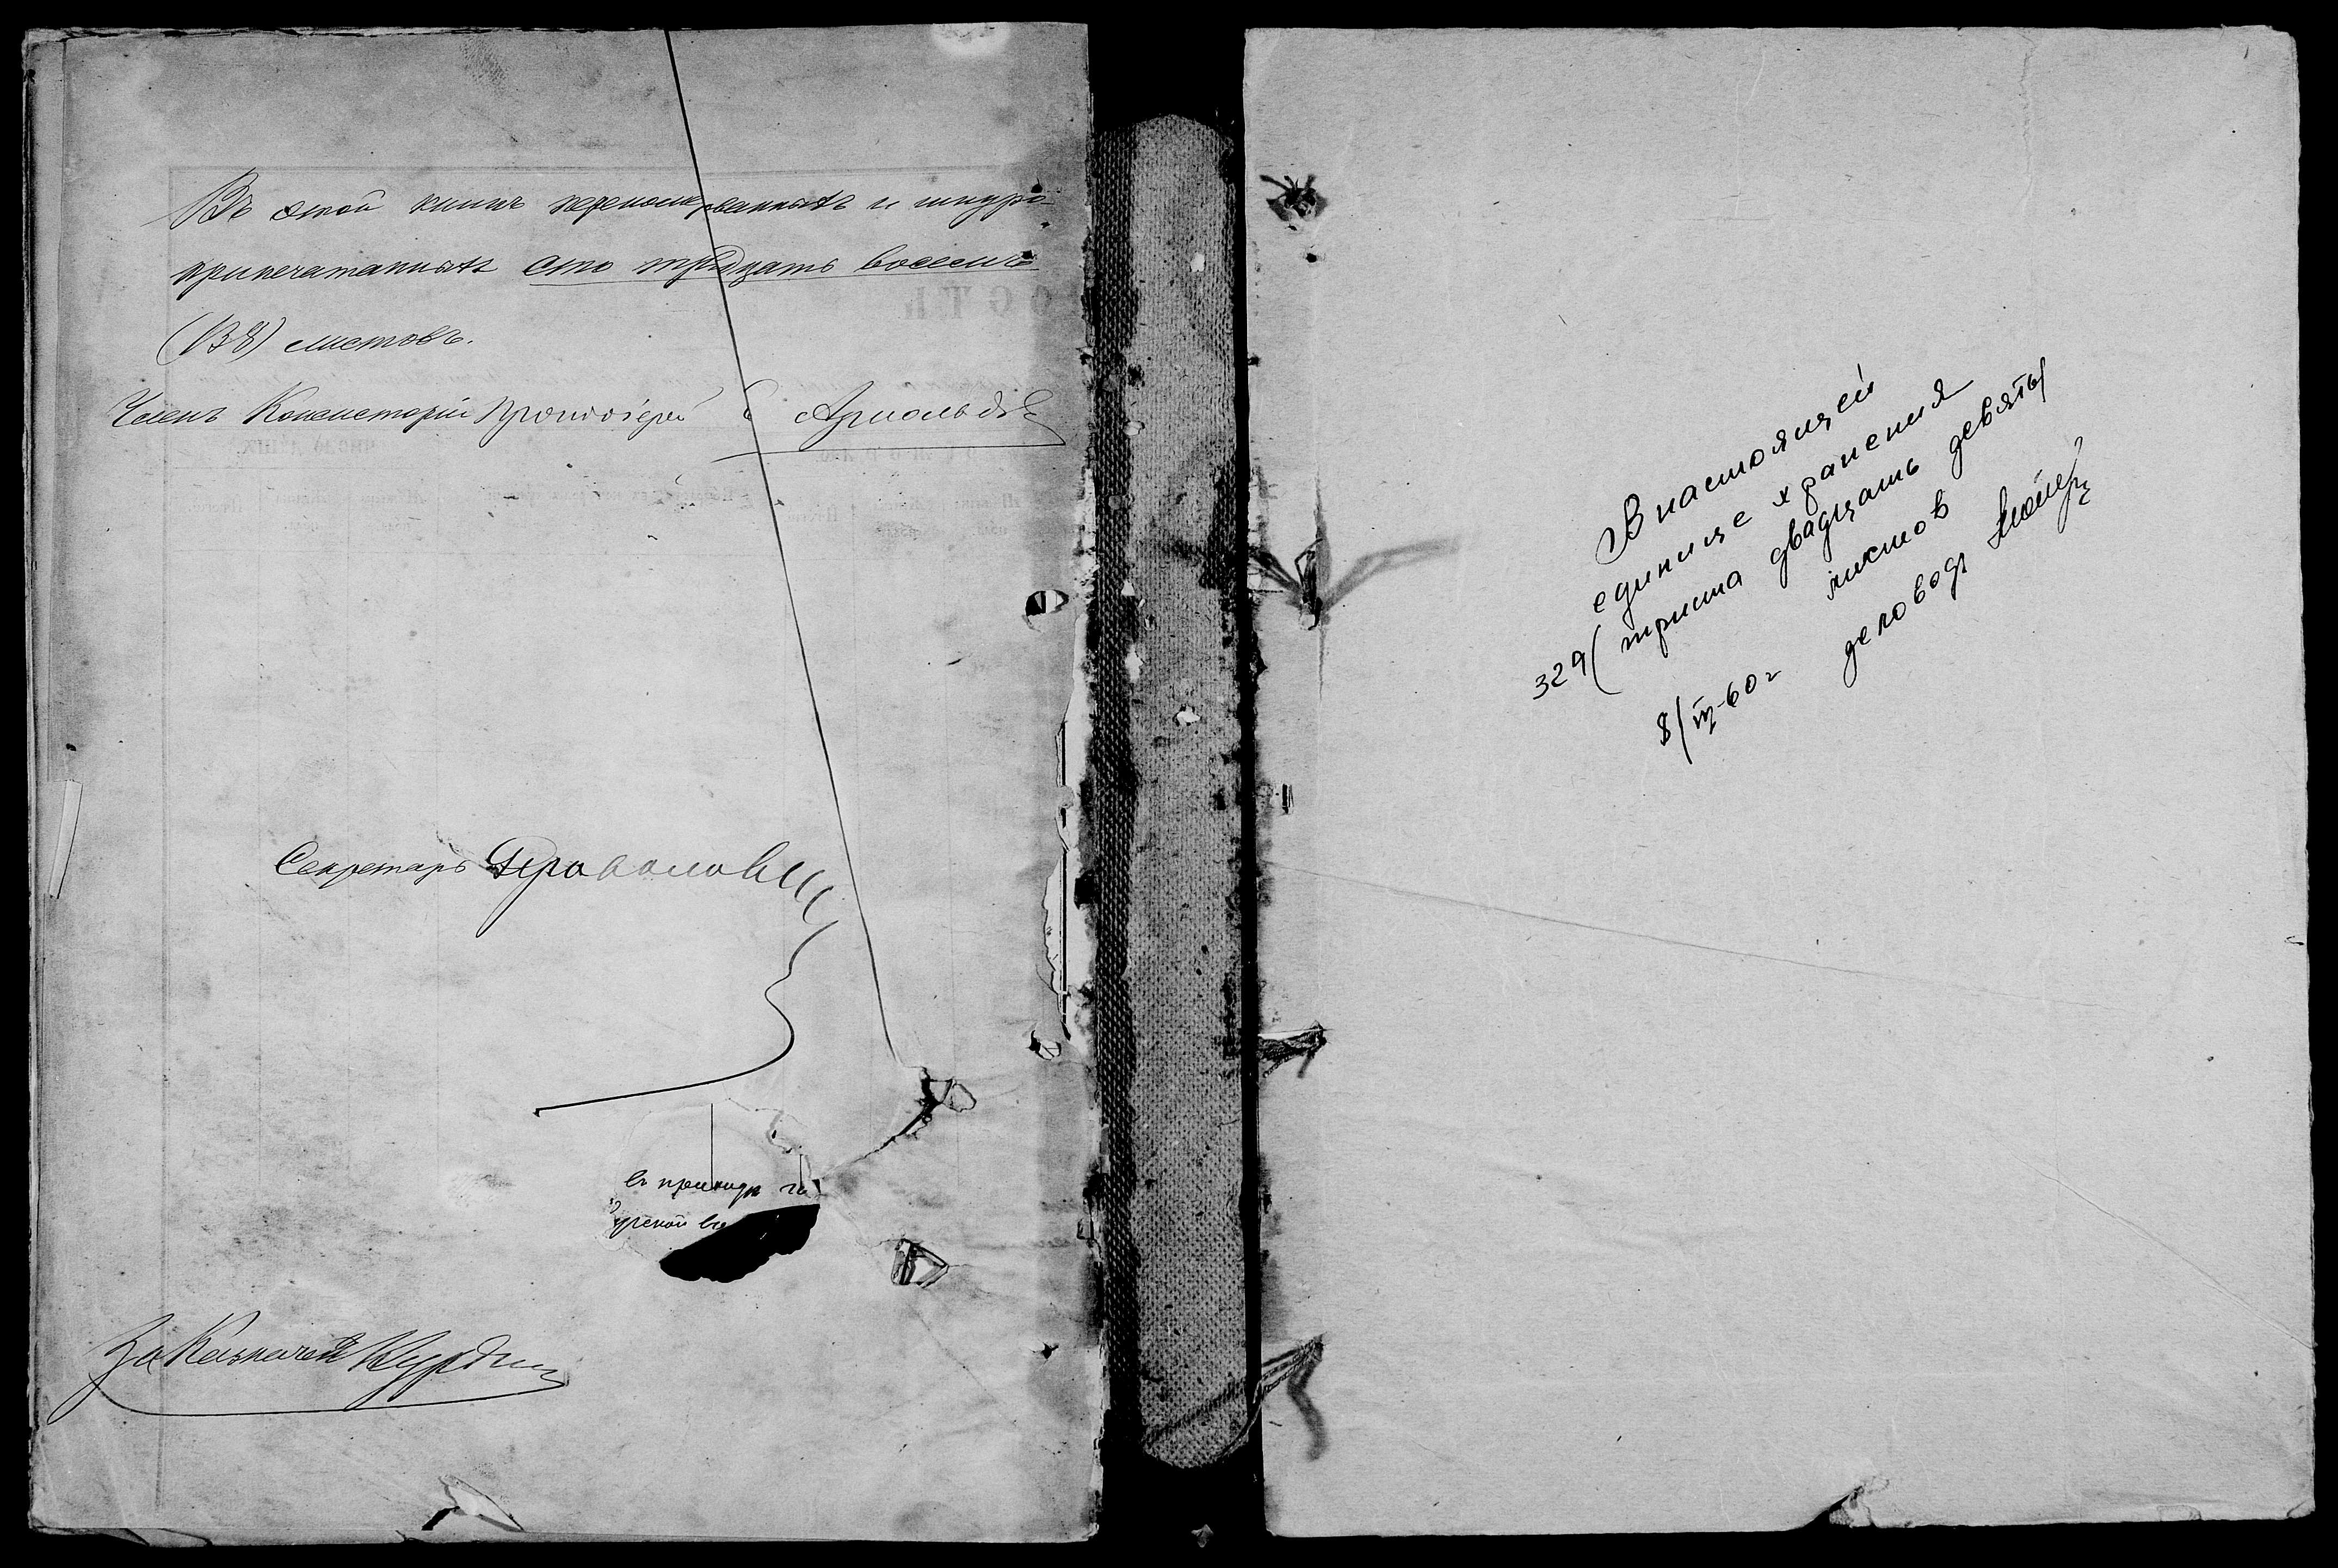 Въ этой книгѣ перенумерованныхъ и шнуро-
припечатанныхъ сто тридцать восемь
(138) листовъ.
Членъ Консисторіи Протоіерей С Арнольдовъ
Секретарь
въ приходѣ
За Казначея
В настоящей
единице хранения
329 (триста двадцать девять)
листов
8/III-60 г деловод